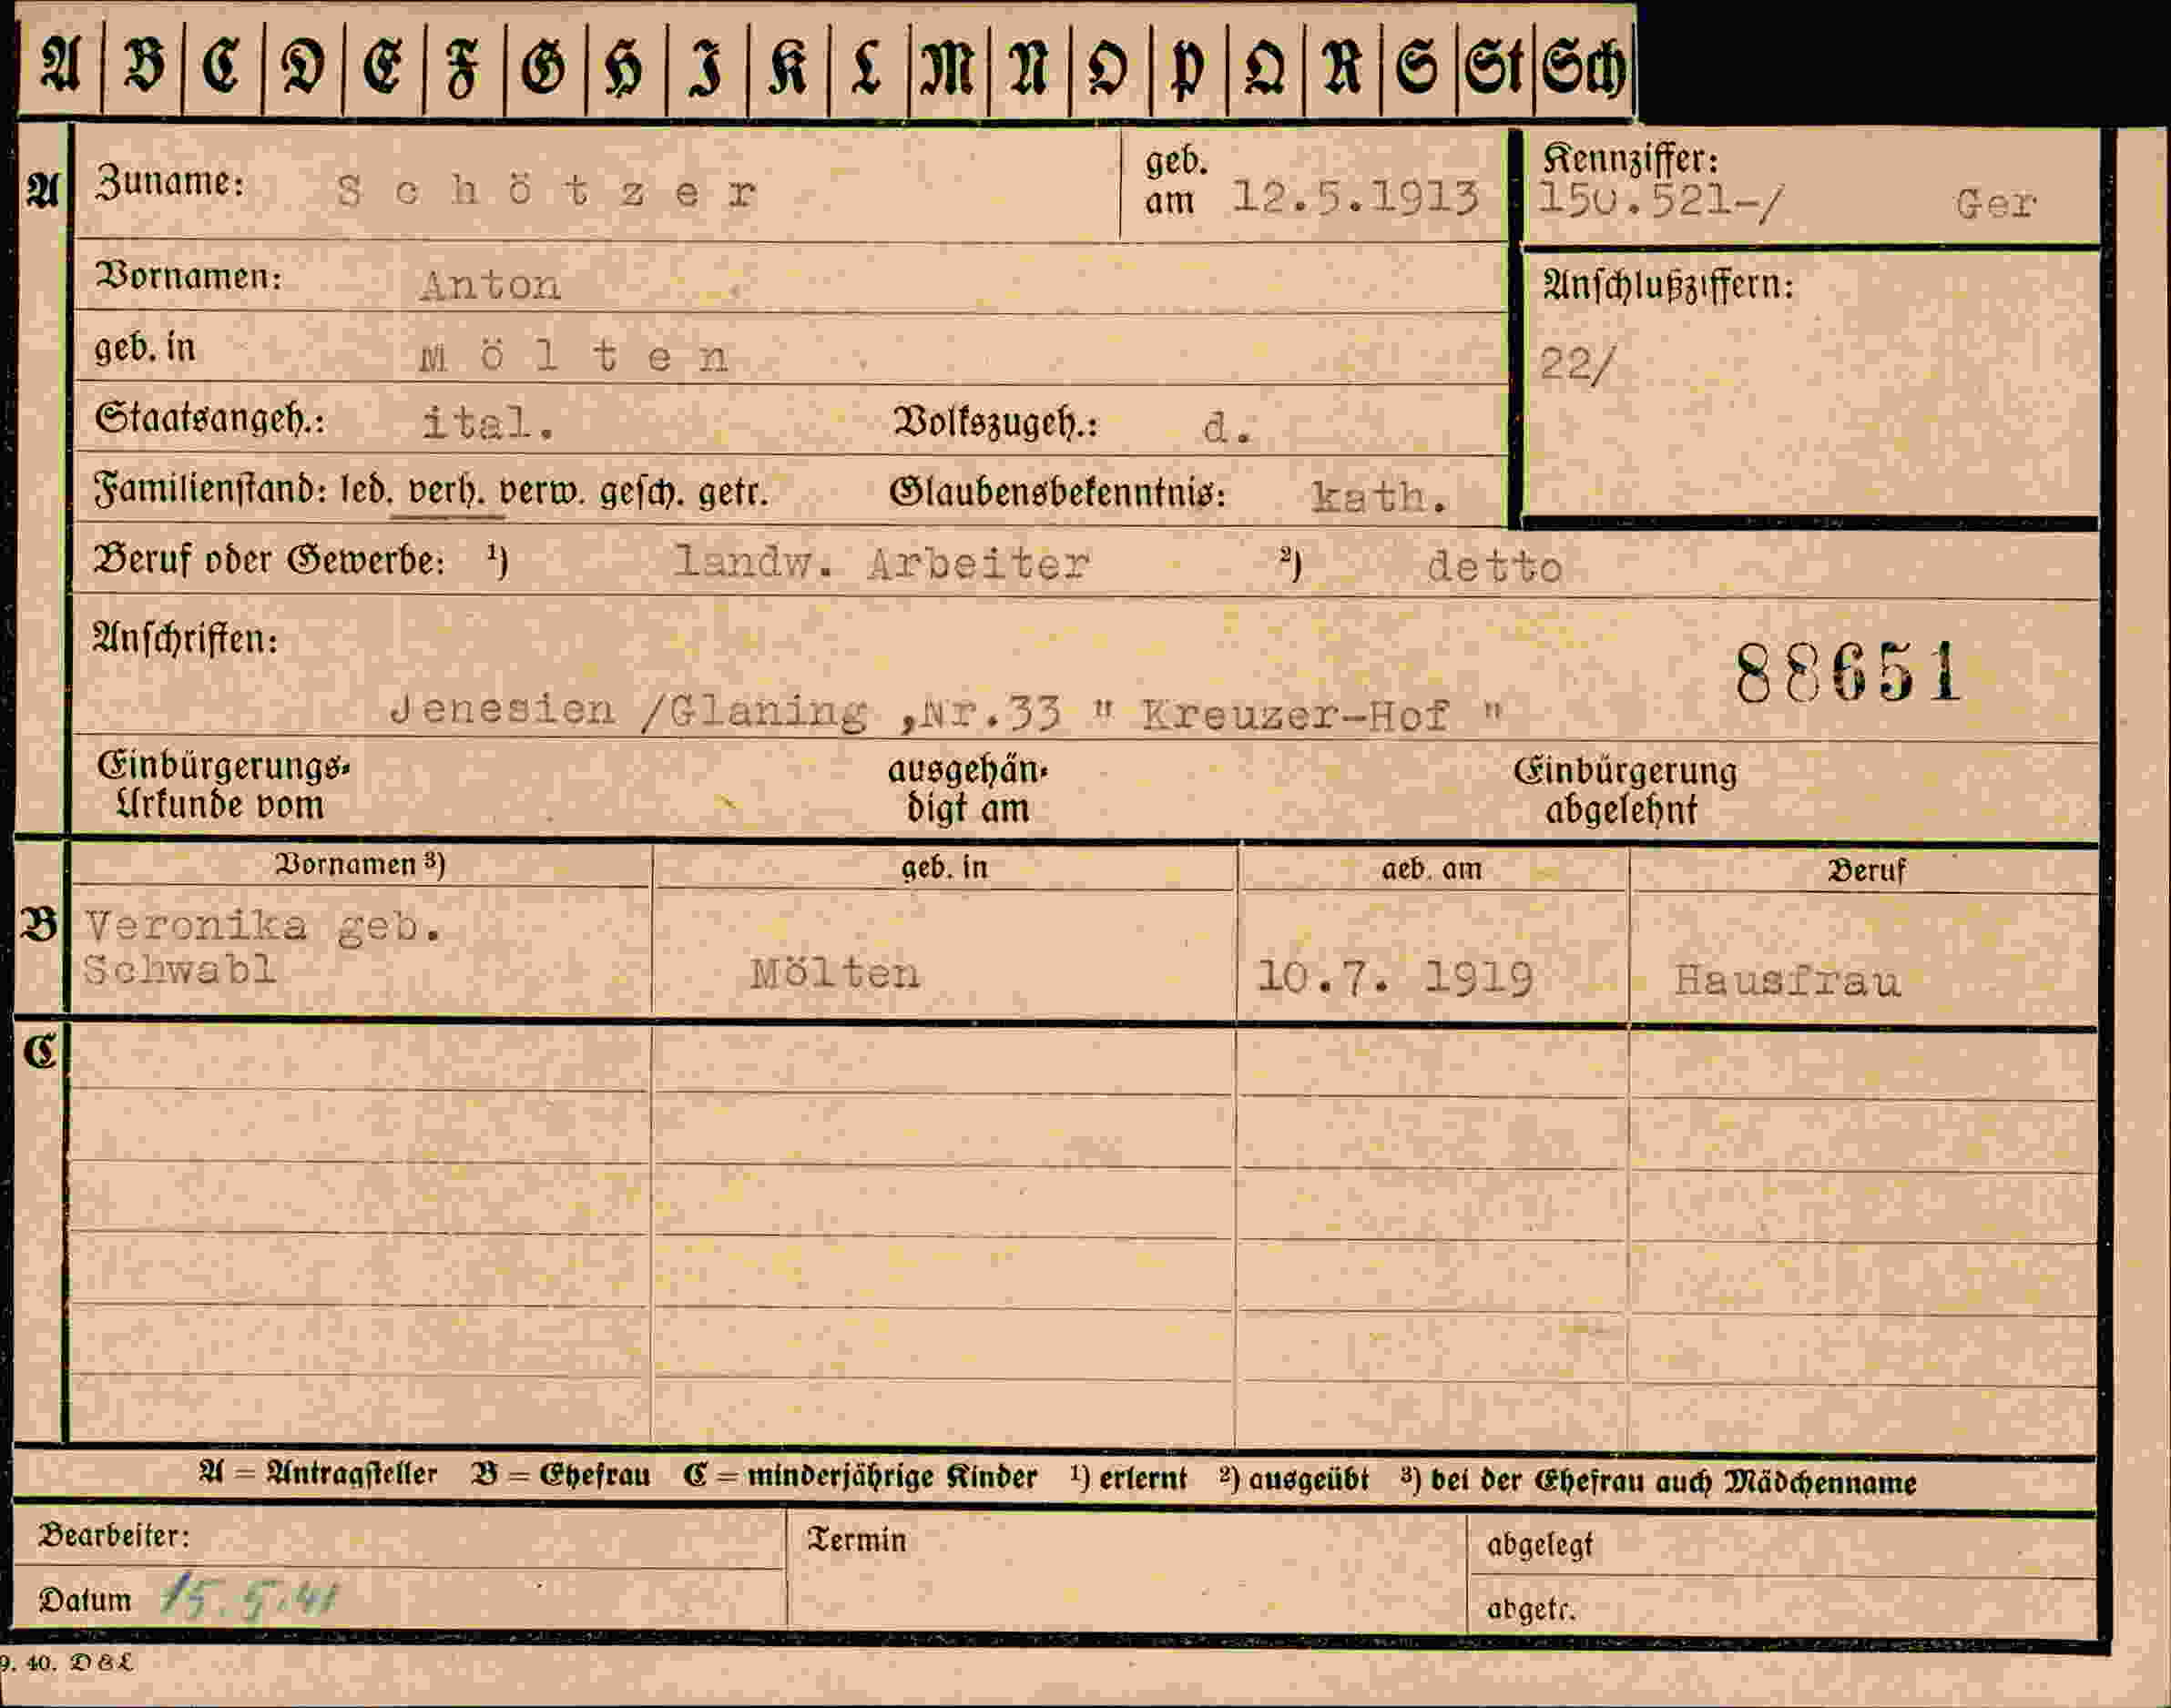 A B C D E F G H I K L M N O P Q R S St Sch
A Zuname: Schötzer geb. am 12.5.1913 Kennziffer: 150.521-/ Ger
Vornamen: Anton Anschlußziffern:
geb. in Mölten 22/
Staatsangeh.: ital. Volkszugeh.: d.
Familienstand: led. verh. verw. gesch. getr. Glaubensbekenntnis: kath.
Beruf oder Gewerbe: ¹) landw. Arbeiter ²) detto
Anschriften: 88651
Jenesien /Glaning ,Nr.33 " Kreuzer-Hof "
Einbürgerungs- ausgehän- Einbürgerung
Urkunde vom digt am abgelehnt
Vornamen ³) geb. in geb. am Beruf
B Veronika geb.
Schwabl Mölten 10.7. 1919 Hausfrau
C
A = Antragsteller B = Ehefrau C = minderjährige Kinder ¹) erlernt ²) ausgeübt ³) bei der Ehefrau auch Mädchenname
Bearbeiter: Termin abgelegt
Datum 15.5.41 abgetr.
9. 40. D & L